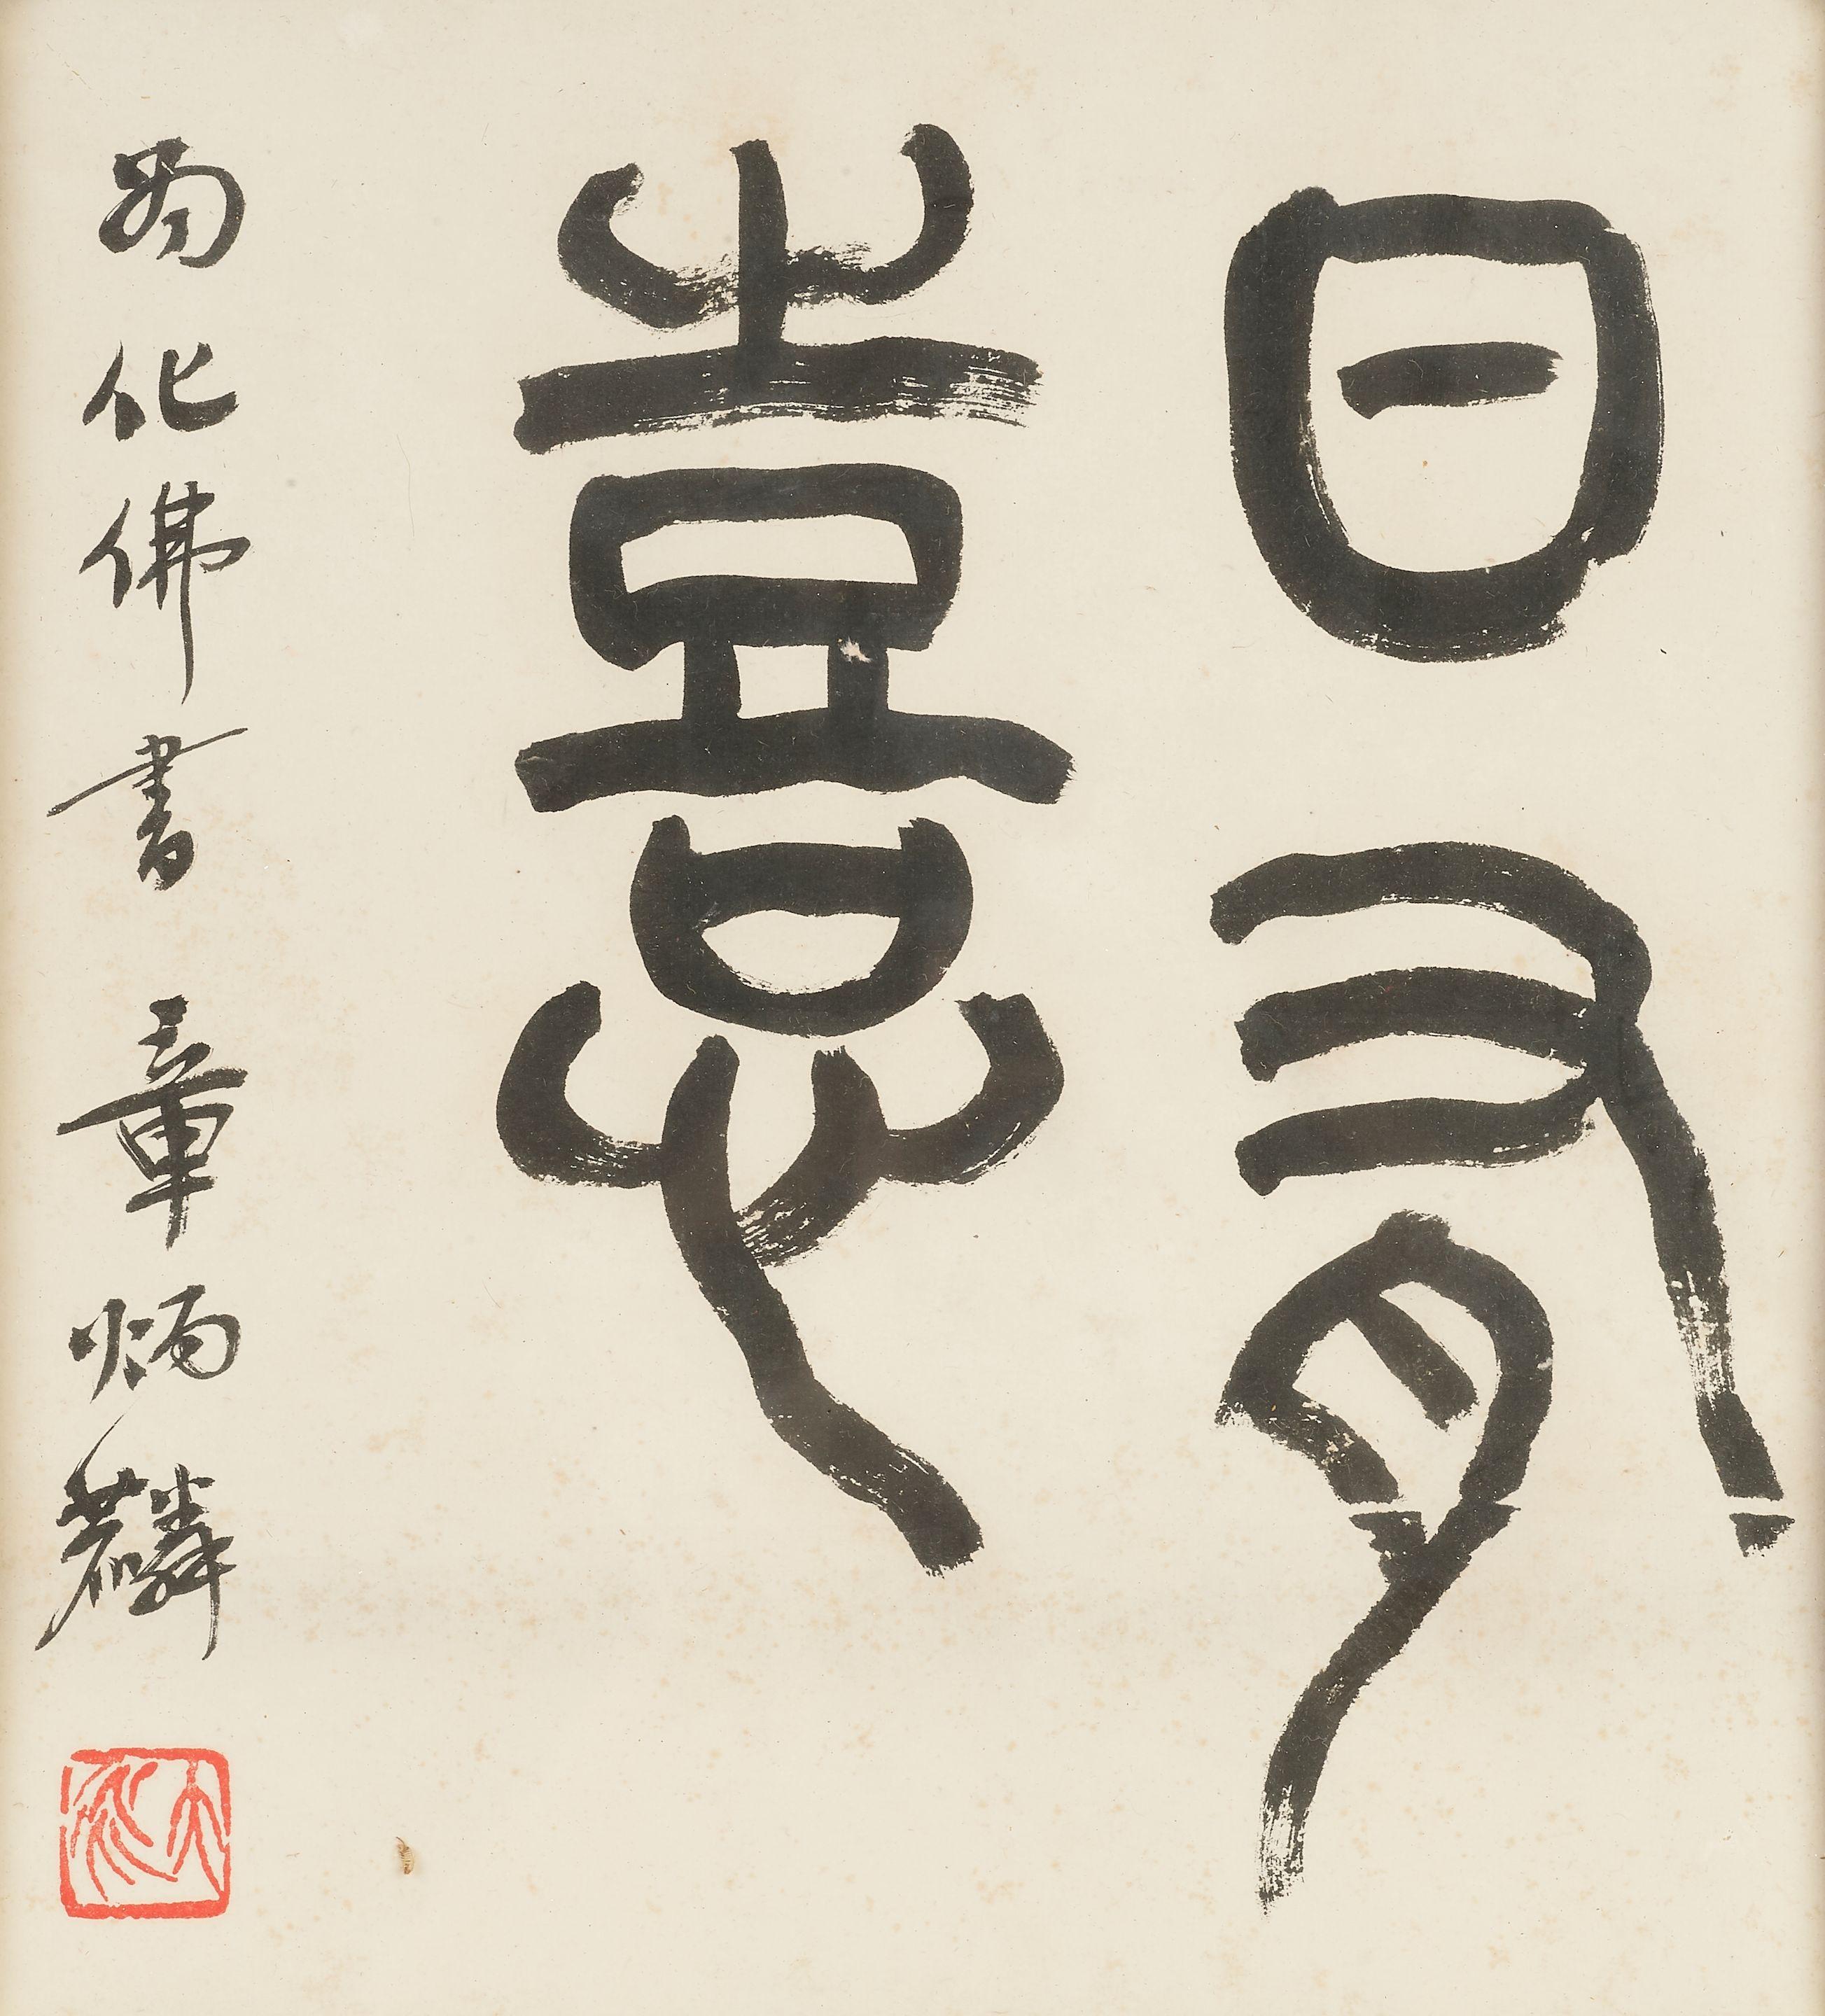 日有
憙
為化佛書 章炳麟